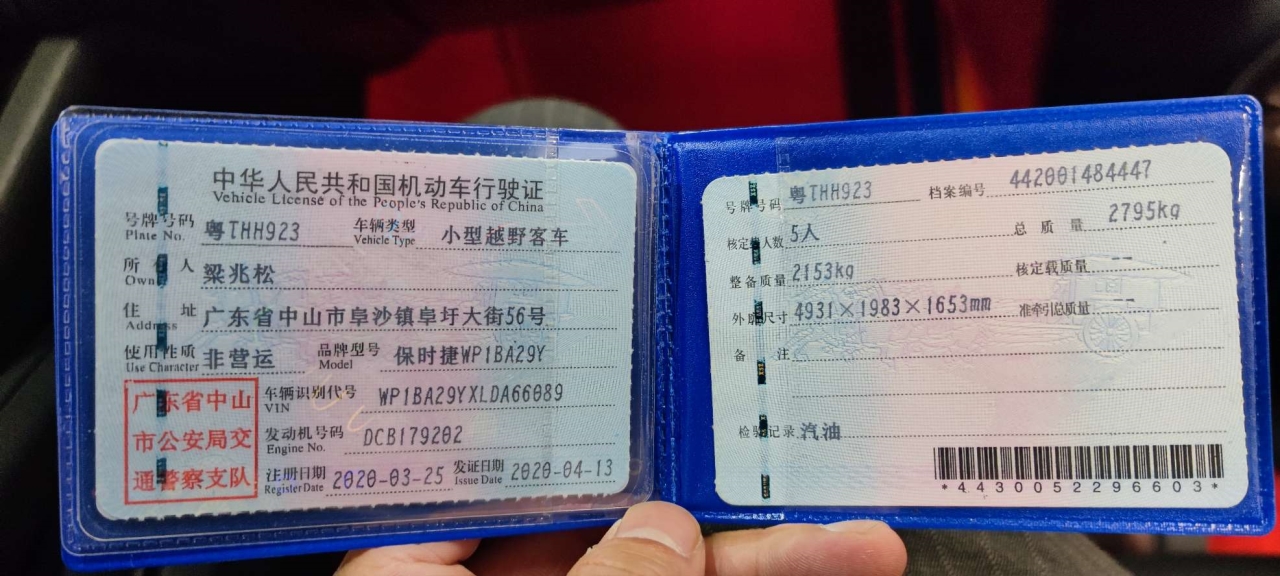 中华人民共和国机动车行驶证
Vehicle License of the People's Republic of China
号牌号码 粤THH923 车辆类型 小型越野客车
Plate No. Vehicle Type
所有人 梁兆松
Owner
住址 广东省中山市阜沙镇阜圩大街56号
Address
使用性质 非营运 品牌型号 保时捷WP1BA29Y
Use Character Model
广东省中山
市公安局交
通警察支队
车辆识别代号 WP1BA29YXLDA66089
VIN
发动机号码 DCB179202
Engine No.
注册日期 2020-03-25 发证日期 2020-04-13
Register Date Issue Date
号牌号码 粤THH923 档案编号 442001484447
核定载人数 5人 总质量 2795kg
整备质量 2153kg 核定载质量 --
外廓尺寸 4931×1983×1653mm 准牵引总质量 --
备注
检验记录 汽油
*4430052296603*